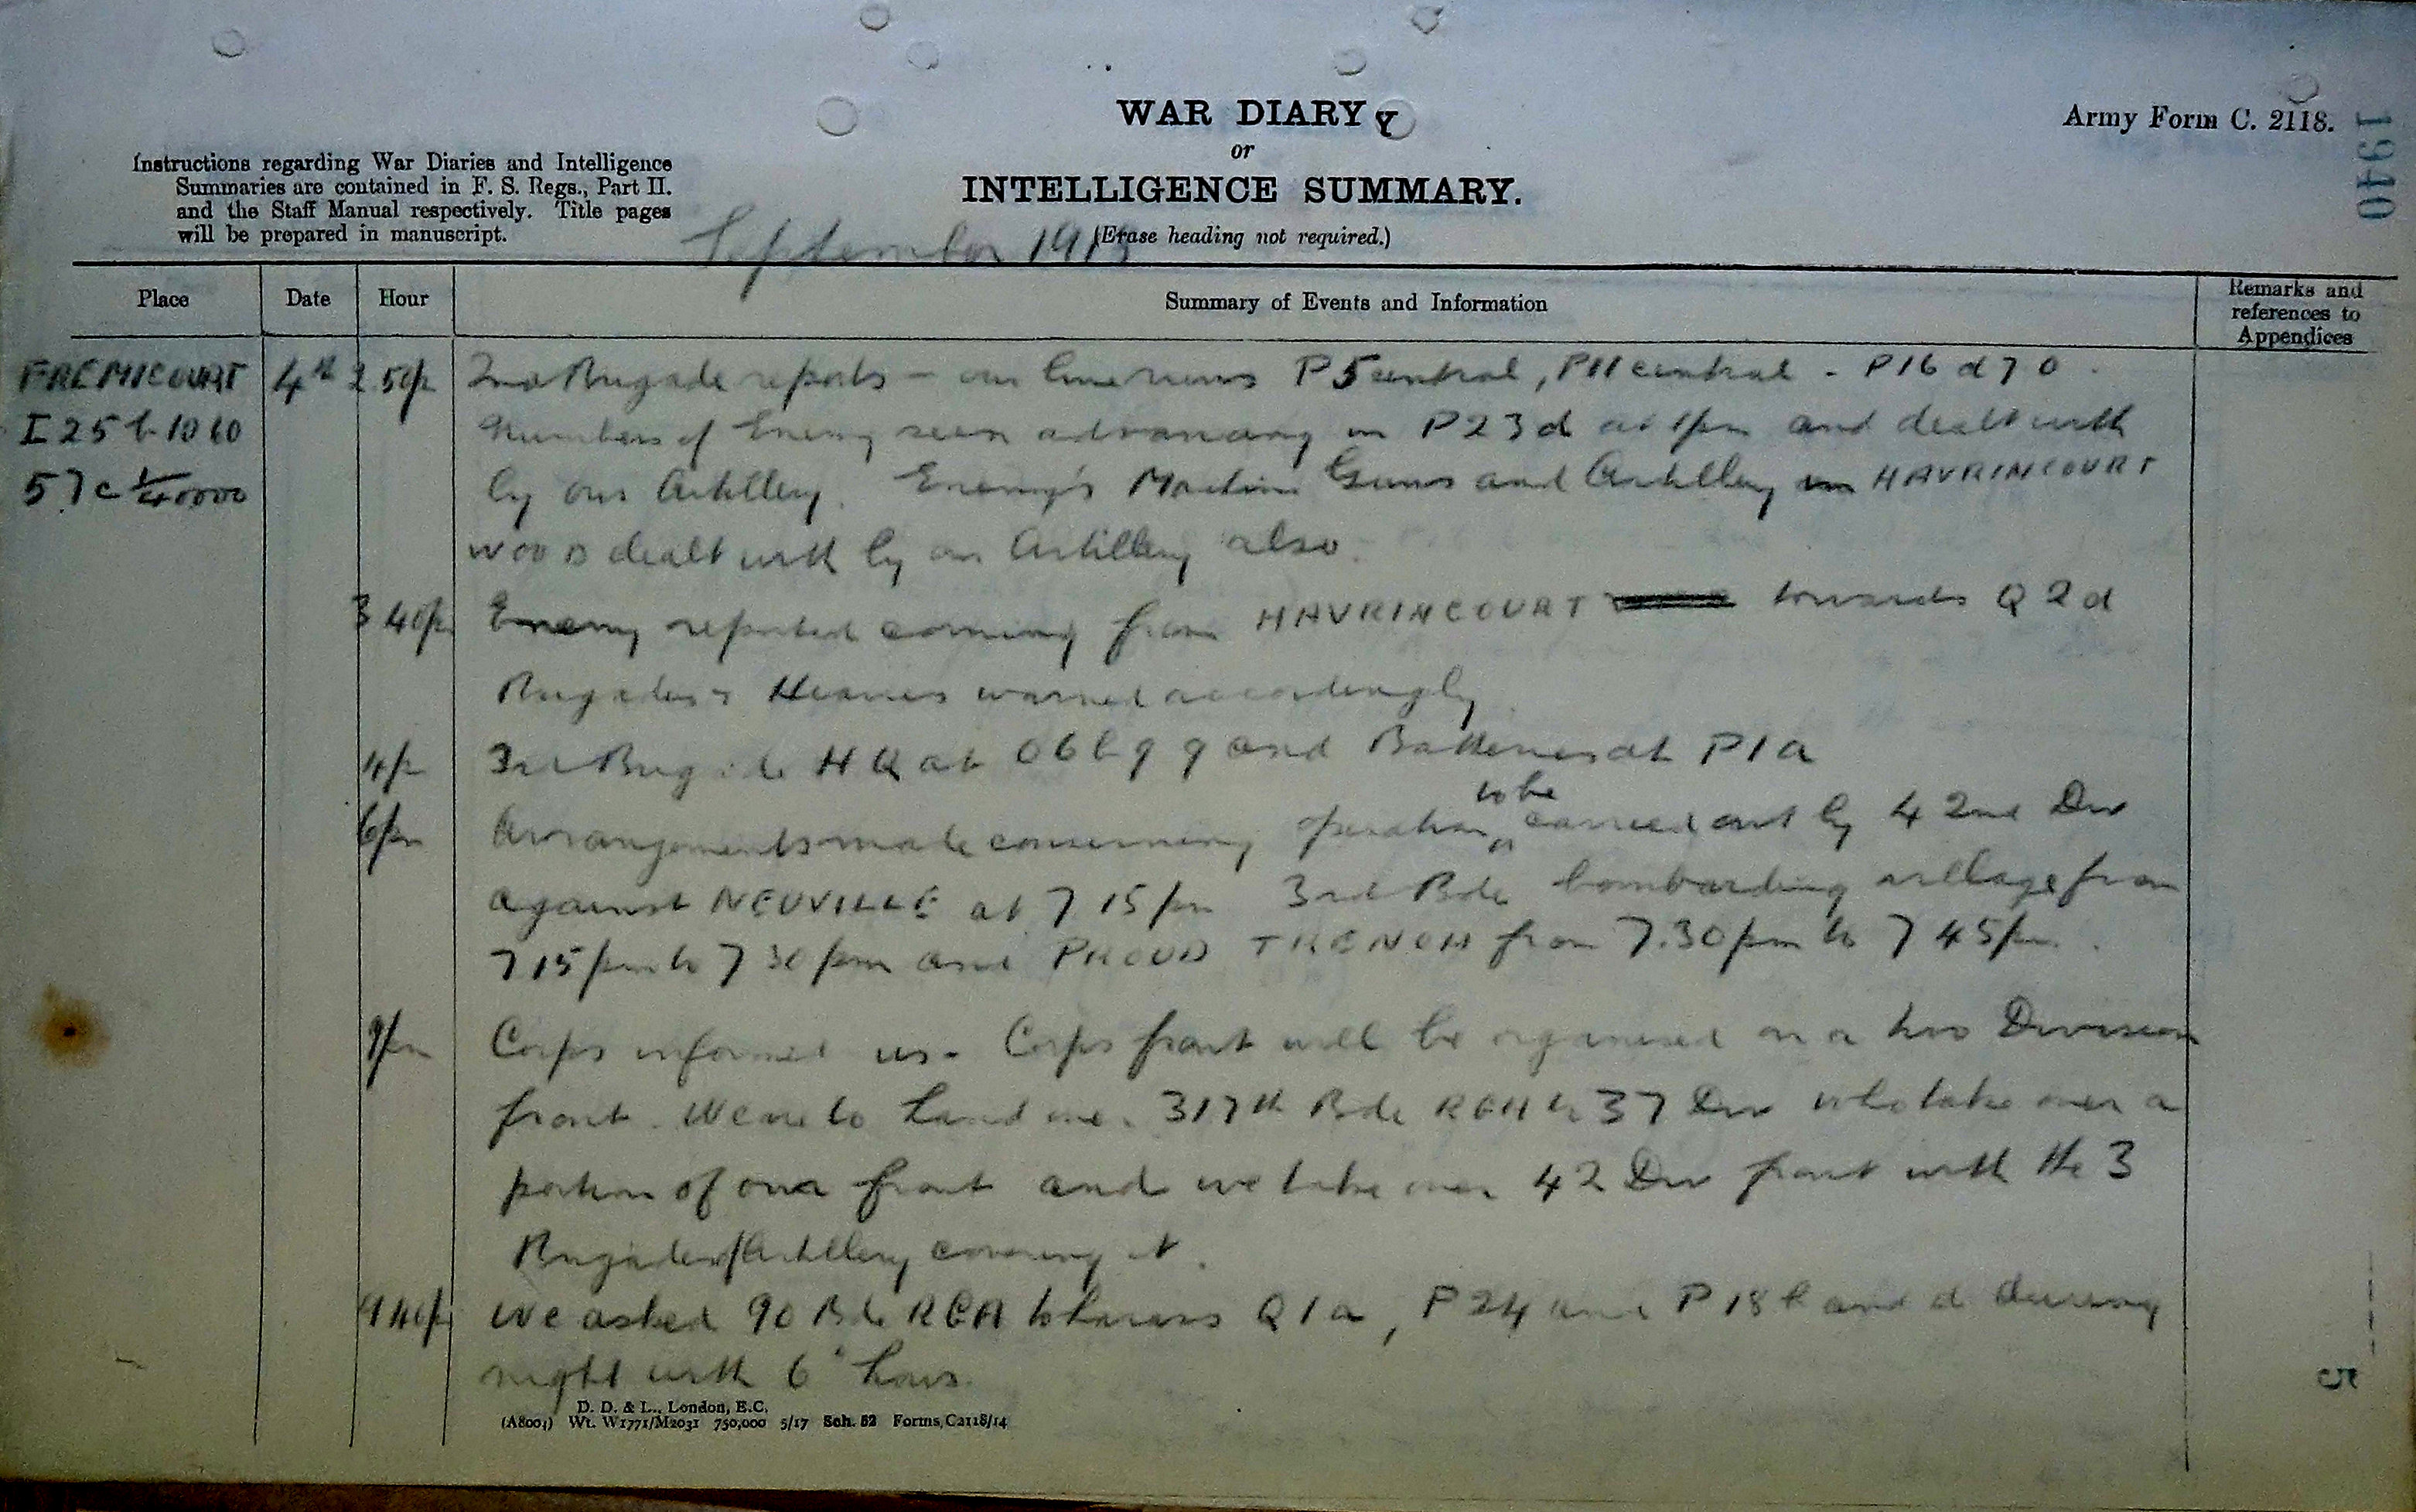 WAR DIARY Y
or
INTELLIGENCE SUMMARY.
(Erase heading not required.)
Army Form C. 2118.
1940
Instructions regarding War Diaries and Intelligence
Summaries are contained in F. S. Regs., Part II.
and the Staff Manual respectively. Title pages
will be prepared in manuscript.
September 1918
Place Date Hour Summary of Events and Information Remarks and references to Appendices
FREMICOURT 4th 2 50p 2nd Brigade reports – our line runs P5 central, P11 central - P16 d 7 0.
I 25 b 10 60 Numbers of Enemy seen advancing in P23d at 1pm and dealt with
57c 1/40000 by our Artillery. Enemy's Machine Guns and Artillery in HAVRINCOURT
WOOD dealt with by our Artillery also.
3 40p Enemy reported coming from HAVRINCOURT towards Q 2 d
Brigades & Heavies warned accordingly.
4p 3rd Brigade HQ at O6b 9 9 and Batteries at P1a
6pm Arrangements made concerning operation to be carried out by 42nd Div
against NEUVILLE at 7 15 pm 3rd Bde bombarding village from
7 15 pm to 7 30 pm and PROUD TRENCH from 7.30 pm to 7 45 pm.
9pm Corps informed us - Corps front will be organised on a two Division
front. We are to hand over 317th Bde RFA to 37 Div who take over a
portion of our front and we take over 42 Div front with the 3
Brigades of Artillery covering it.
9 40p We asked 90 Bde RGA to harass Q1a, P24 and P18 b and d during
night with 6" hows.
D. D. & L., London, E.C.
(A8001) Wt. W1771/M2031 750,000 5/17 Sch. 52 Forms, C2118/14
5